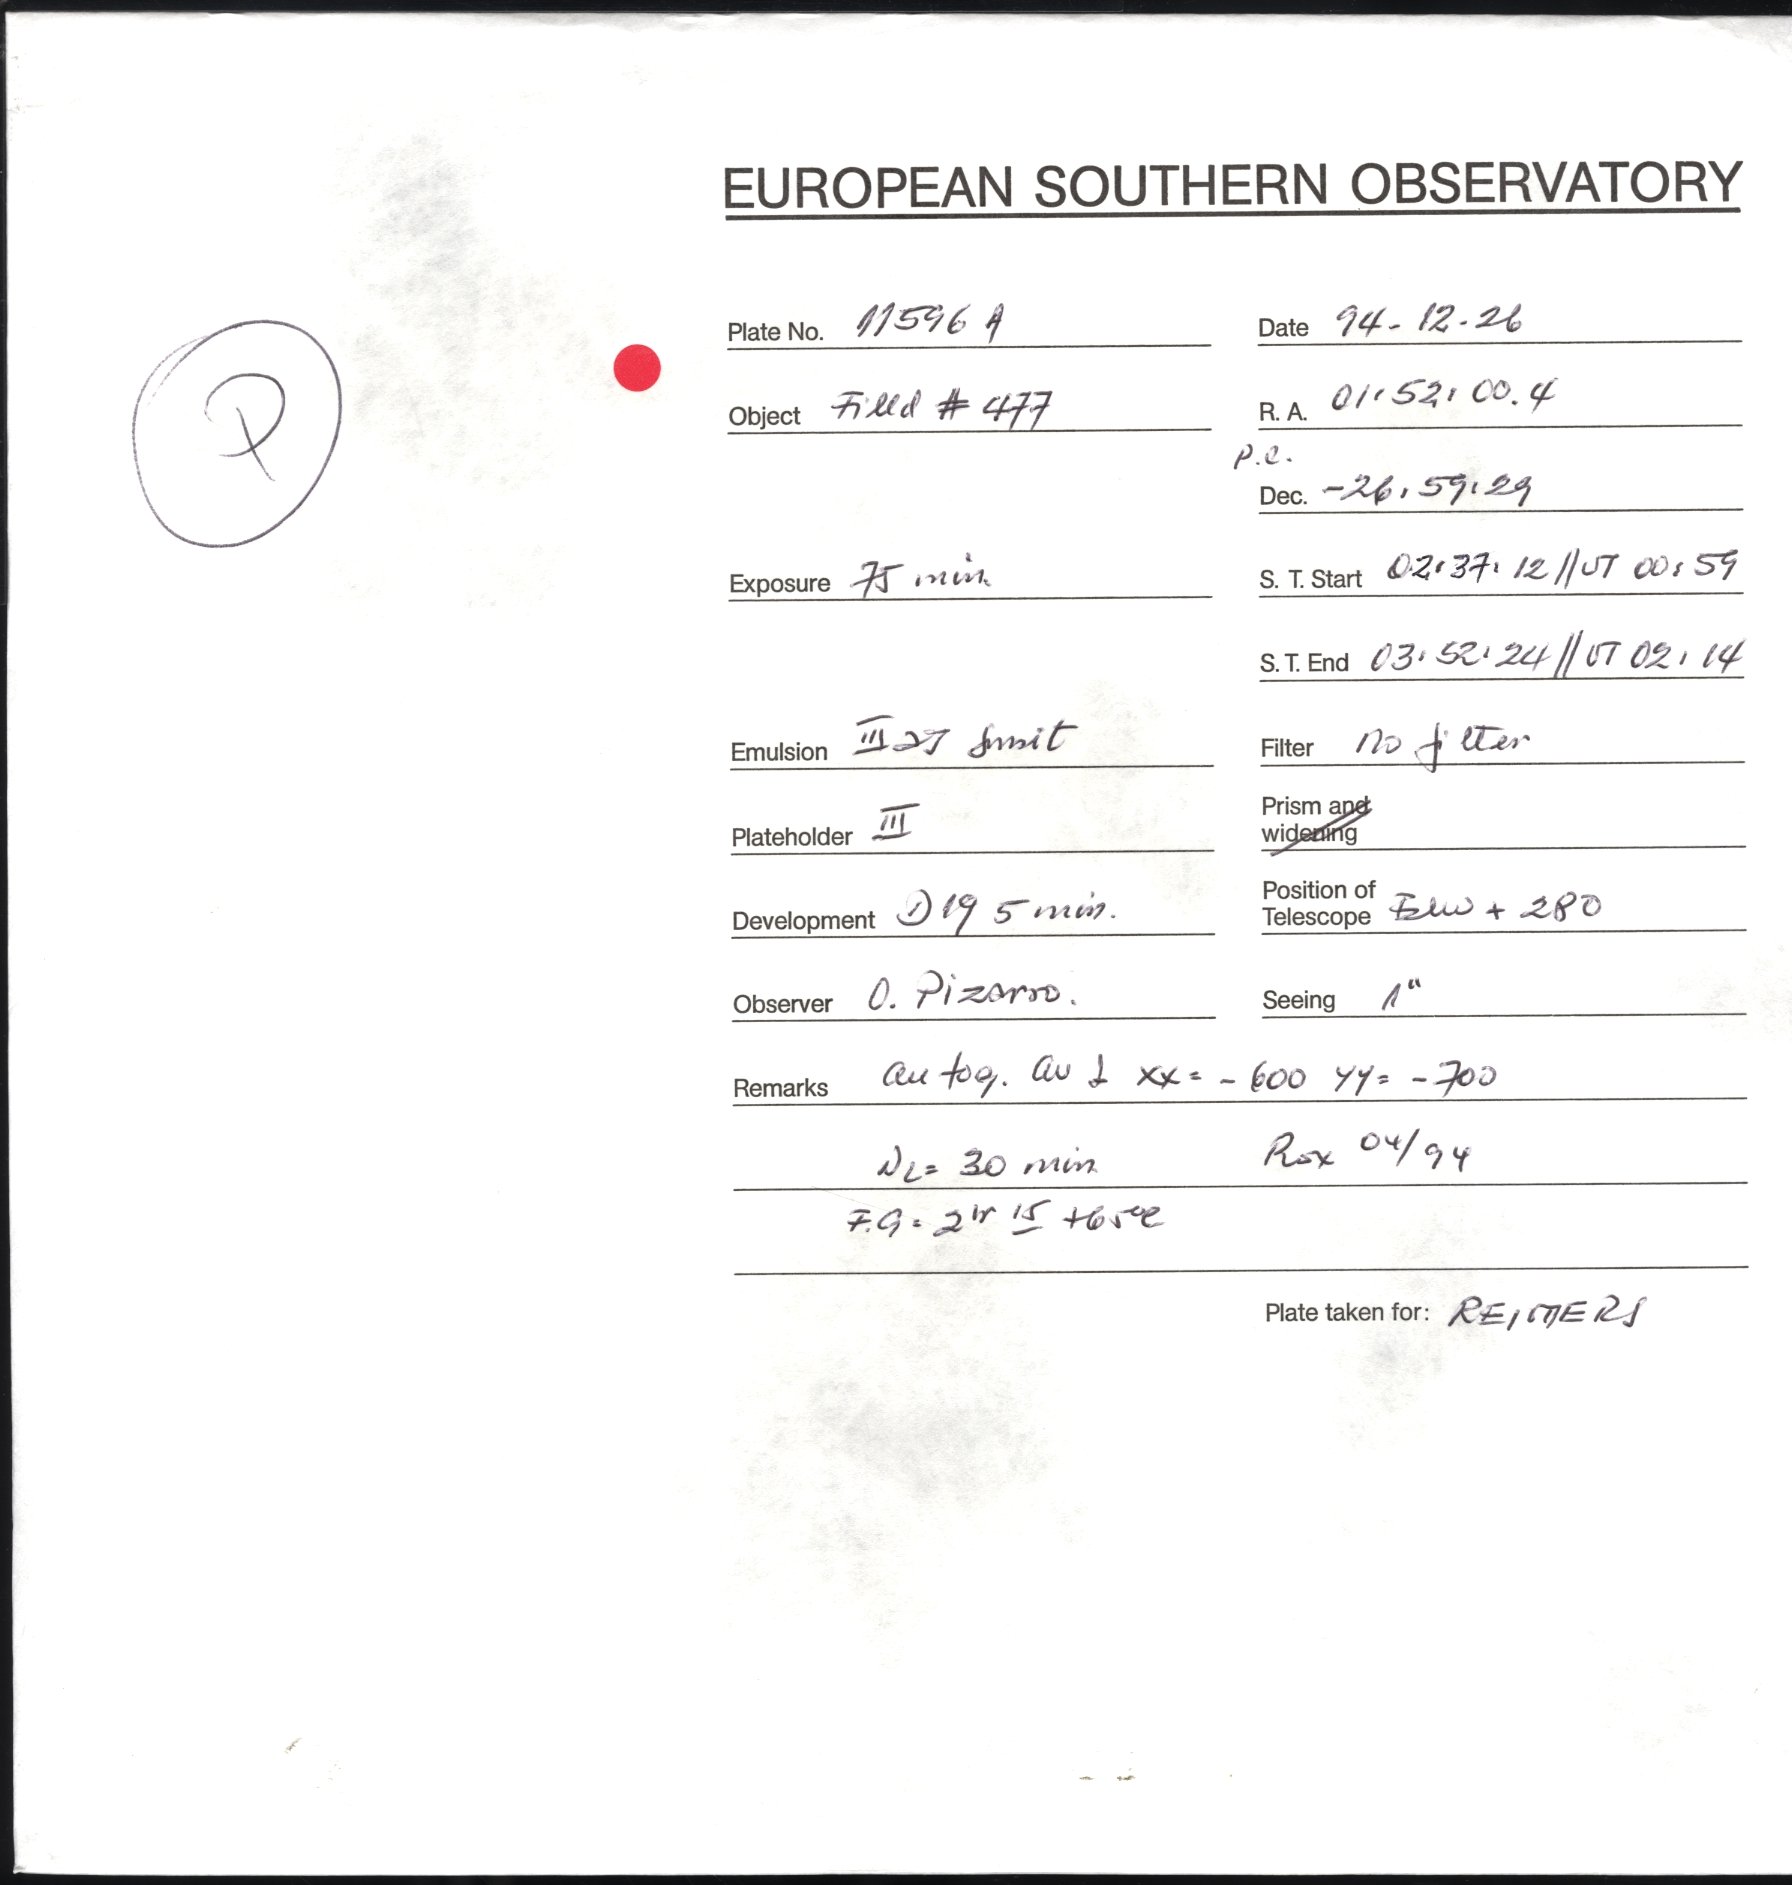 EUROPEAN SOUTHERN OBSERVATORY
Plate No. 11596 A
Date 94-12-26
P
Object Field # 477
R. A. 01:52:00.4
p.e.
Dec. -26:59:29
Exposure 75 min
S. T. Start 02:37:12 // UT 00:59
S. T. End 03:52:24 // UT 02:14
Emulsion III
Filter no filter
Plateholder III
Prism and
widening
Development D19 5 min.
Position of
Telescope + 280
Observer O. Pizarro.
Seeing 1"
Remarks autog. xx = -600 yy = -700
NL = 30 min
04/94
F.G = 2hr 15 +65°C
Plate taken for: REIMERS